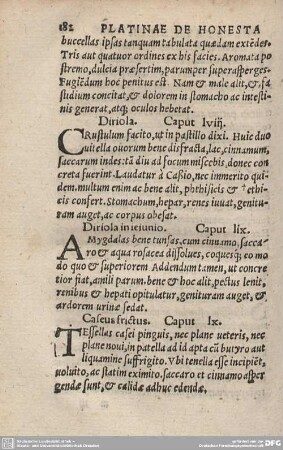 182 PLATINAE DE HONESTA
buccellas ipsas tanquam tabulata quædam extēdes.
Tris aut quatuor ordines ex his facies. Aromata po
stremo, dulcia præsertim, parumper superasperges.
Fugiēdum hoc penitus est. Nam & male alit, &
studium concitat, & dolorem in stomacho ac intesti
nis generat, atq; oculos hebetat.
Diriola. Caput lviij.
CRustulum facito, ut in pastillo dixi. Huic duo
vitella ovorum bene disfracta, lac, cinnamum,
saccarum indes: tā diu ad focum miscebis, donec con
creta fuerint. Laudatur à Cassio, nec immerito qui
dem. multum enim ac bene alit, phthisicis & †ethi
cis confert. Stomachum, hepar, renes iuuat, genitu
ram auget, ac corpus obesat.
Diriola in ieiunio. Caput lix.
AMygdalas bene tunsas, cum cinnamo, sacca
ro & aqua rosacea dissolues, coquesq; eo mo
do quo & superiorem. Addendum tamen, ut concre
tior fiat, amili parum. bene & hoc alit, pectus lenit,
renibus & hepati opitulatur, genituram auget, &
ardorem urinæ sedat.
Caseus frictus. Caput lx.
TEssellas casei pinguis, nec plane veteris, nec
plane noui, in patella ad id apta cū butyro aut
liquamine suffrigito. Vbi tenella esse incipiēt,
uoluito, ac statim eximito. saccaro et cinnamo asper
gendæ sunt, & calidæ adhuc edendæ.